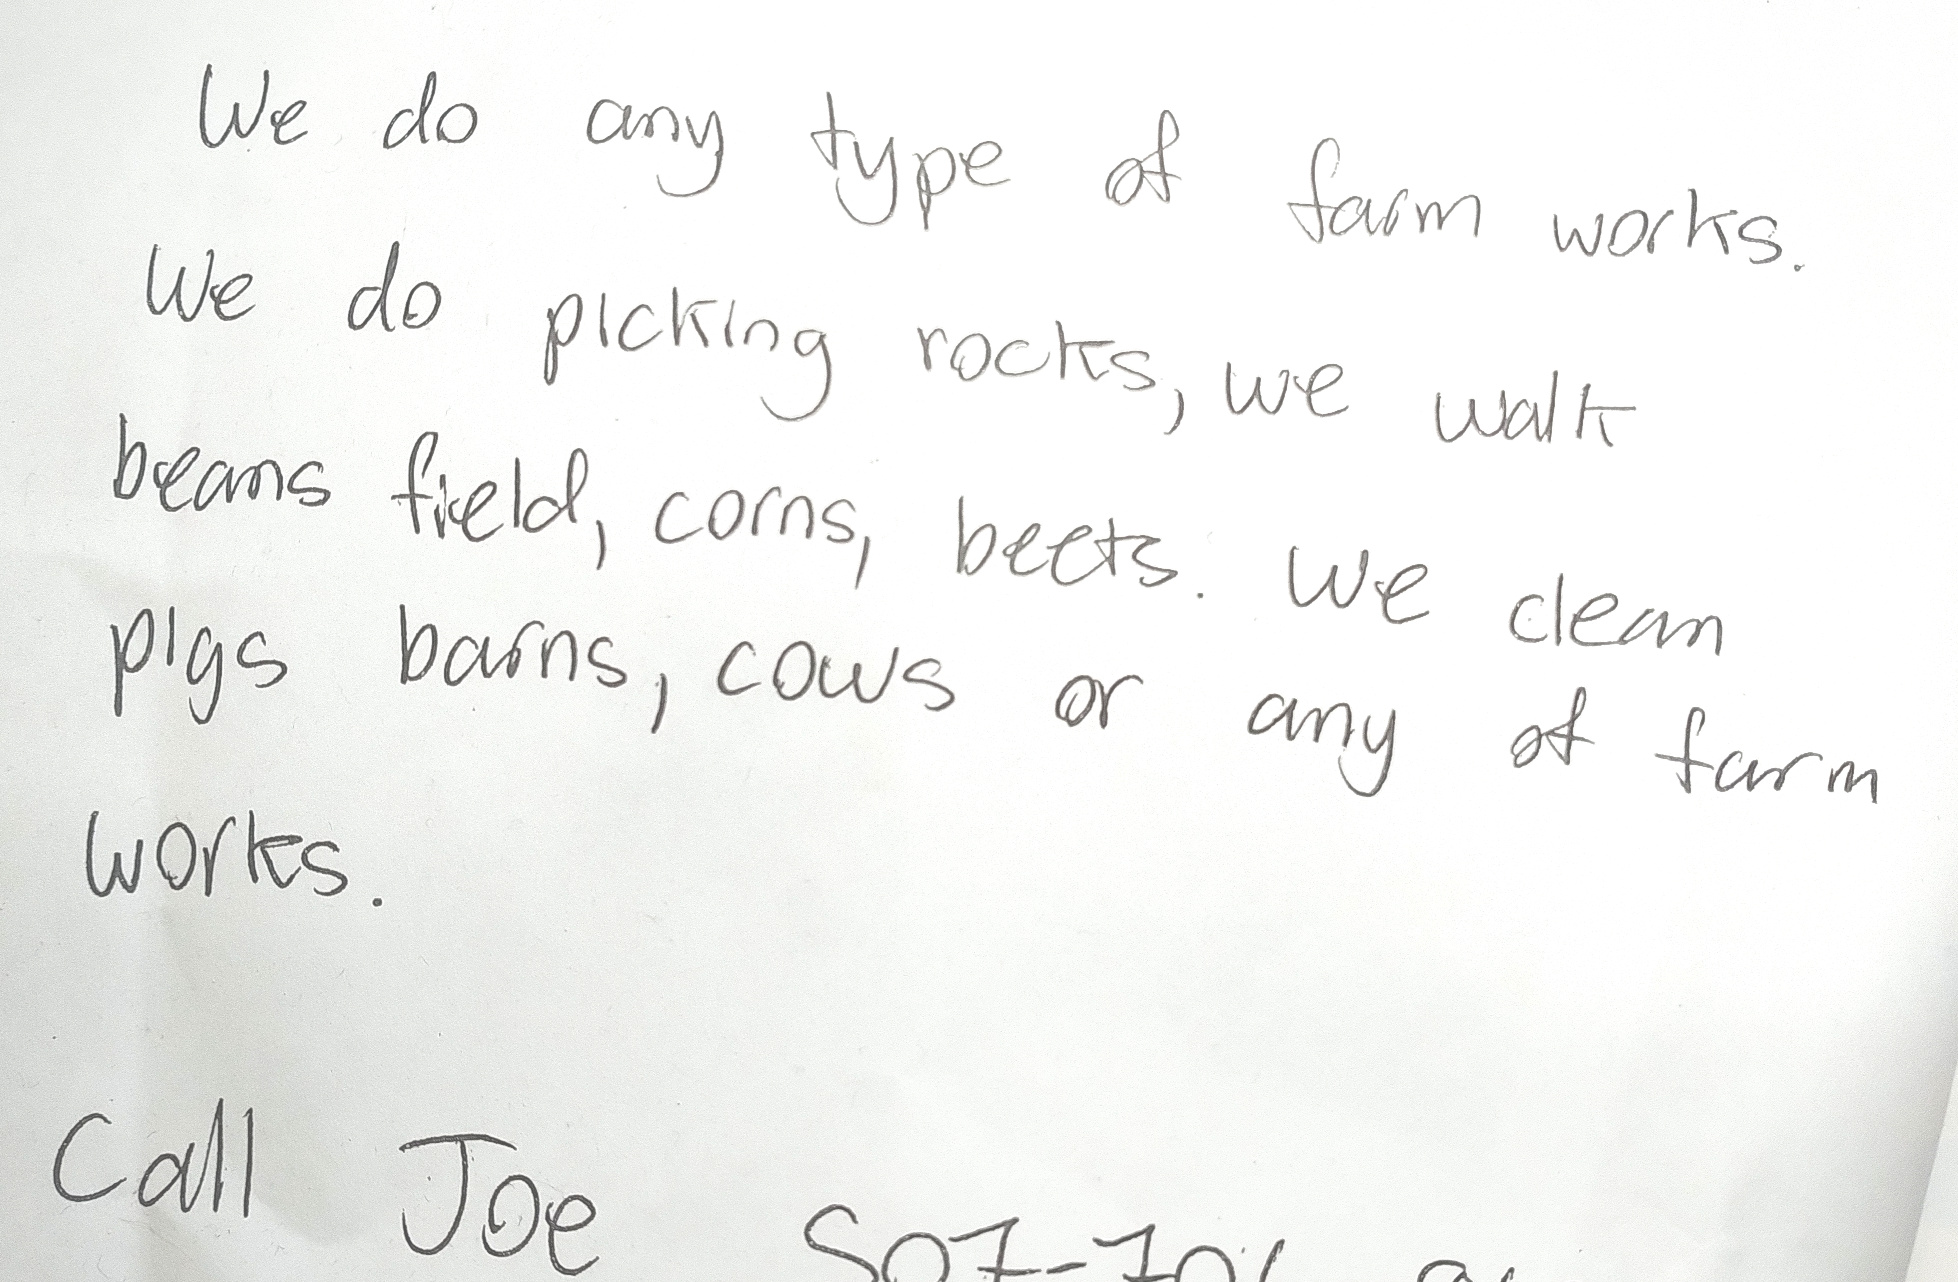 We do any type of farm works.
We do picking rocks, we walk
beans field, corns, beets. We clean
pigs barns, cows or any of farm
works.
Call Joe 507-